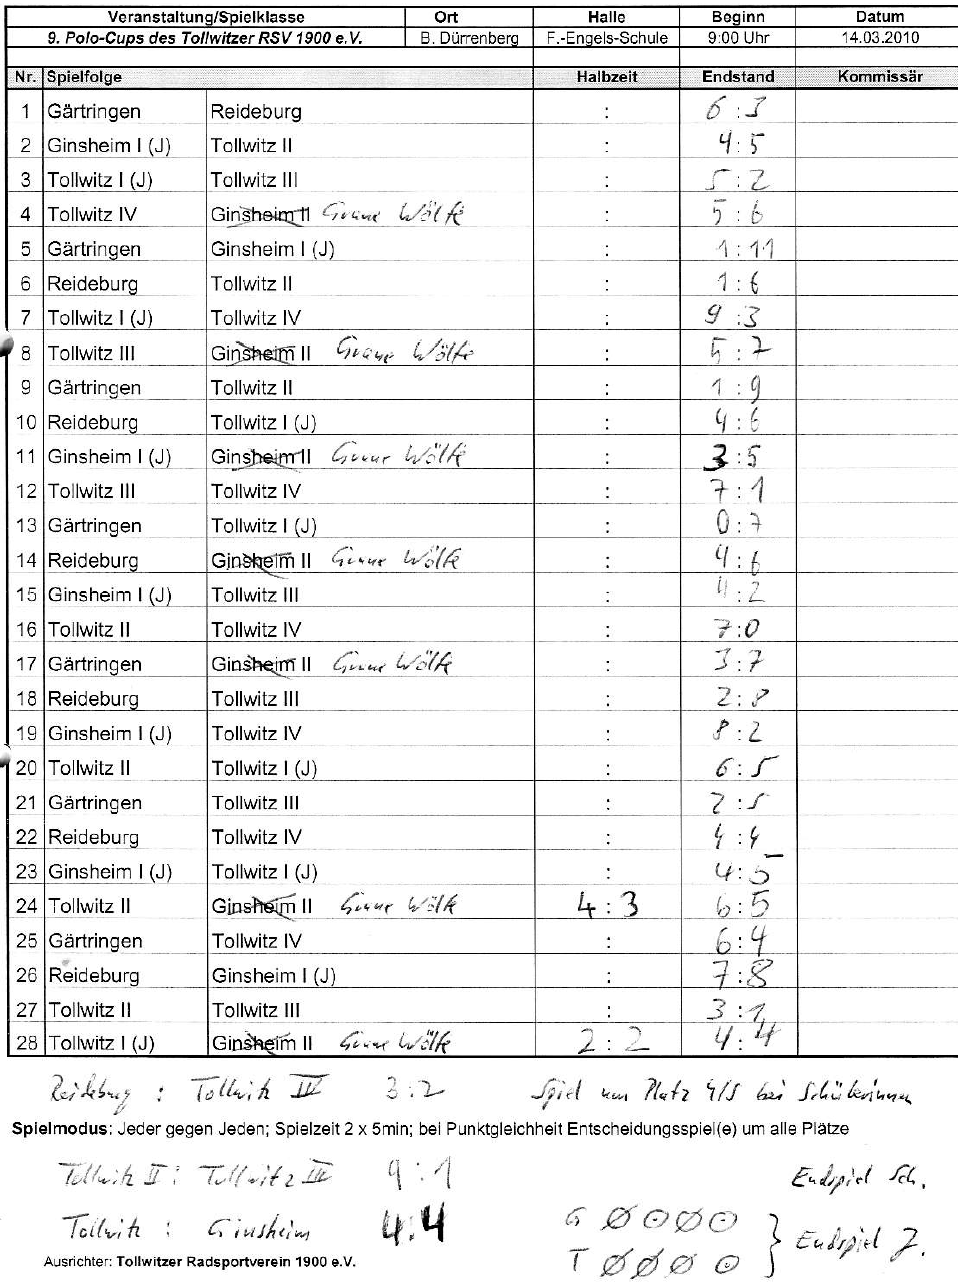 Veranstaltung/Spielklasse Ort Halle Beginn Datum
9. Polo-Cups des Tollwitzer RSV 1900 e.V. B. Dürrenberg F.-Engels-Schule 9:00 Uhr 14.03.2010
Nr. Spielfolge Halbzeit Endstand Kommissär
1 Gärtringen Reideburg : 6:3
2 Ginsheim I (J) Tollwitz II : 4:5
3 Tollwitz I (J) Tollwitz III : 5:2
4 Tollwitz IV Ginsheim II Graue Wölfe : 5:6
5 Gärtringen Ginsheim I (J) : 1:11
6 Reideburg Tollwitz II : 1:6
7 Tollwitz I (J) Tollwitz IV : 9:3
8 Tollwitz III Ginsheim II Graue Wölfe : 5:7
9 Gärtringen Tollwitz II : 1:9
10 Reideburg Tollwitz I (J) : 4:6
11 Ginsheim I (J) Ginsheim II Graue Wölfe : 3:5
12 Tollwitz III Tollwitz IV : 7:1
13 Gärtringen Tollwitz I (J) : 0:7
14 Reideburg Ginsheim II Graue Wölfe : 4:6
15 Ginsheim I (J) Tollwitz III : 4:2
16 Tollwitz II Tollwitz IV : 7:0
17 Gärtringen Ginsheim II Graue Wölfe : 3:7
18 Reideburg Tollwitz III : 2:8
19 Ginsheim I (J) Tollwitz IV : 8:2
20 Tollwitz II Tollwitz I (J) : 6:5
21 Gärtringen Tollwitz III : 2:5
22 Reideburg Tollwitz IV : 4:4
23 Ginsheim I (J) Tollwitz I (J) : 4:5
24 Tollwitz II Ginsheim II Graue Wölfe 4:3 6:5
25 Gärtringen Tollwitz IV : 6:4
26 Reideburg Ginsheim I (J) : 7:8
27 Tollwitz II Tollwitz III : 3:1
28 Tollwitz I (J) Ginsheim II Graue Wölfe 2:2 4:4
Reideburg : Tollwitz IV 3:2 Spiel um Platz 4/5 bei Schülerinnen
Spielmodus: Jeder gegen Jeden; Spielzeit 2 x 5min; bei Punktgleichheit Entscheidungsspiel(e) um alle Plätze
Tollwitz II : Tollwitz III 9:1 Endspiel Sch.
Tollwitz : Ginsheim 4:4 G
T } Endspiel J.
Ausrichter: Tollwitzer Radsportverein 1900 e.V.